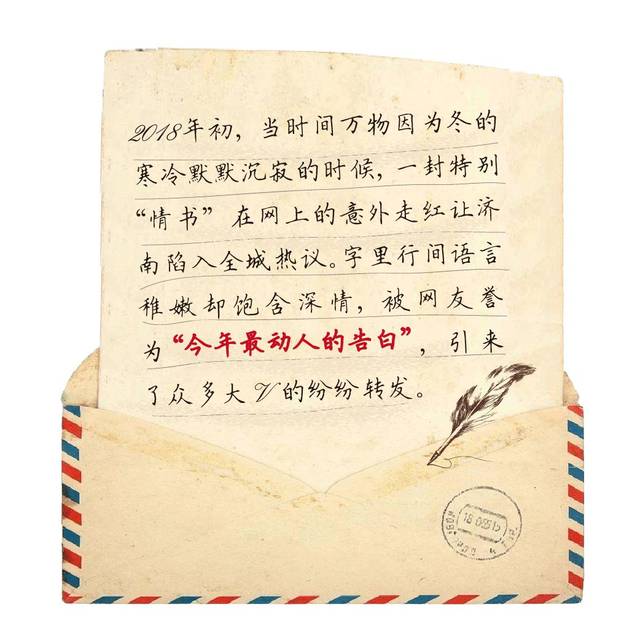 2018年初，当时间万物因为冬的
寒冷默默沉寂的时候，一封特别
“情书” 在网上的意外走红让济
南陷入全城热议。字里行间语言
稚嫩却饱含深情，被网友誉
为“今年最动人的告白”，引来
了众多大V的纷纷转发。